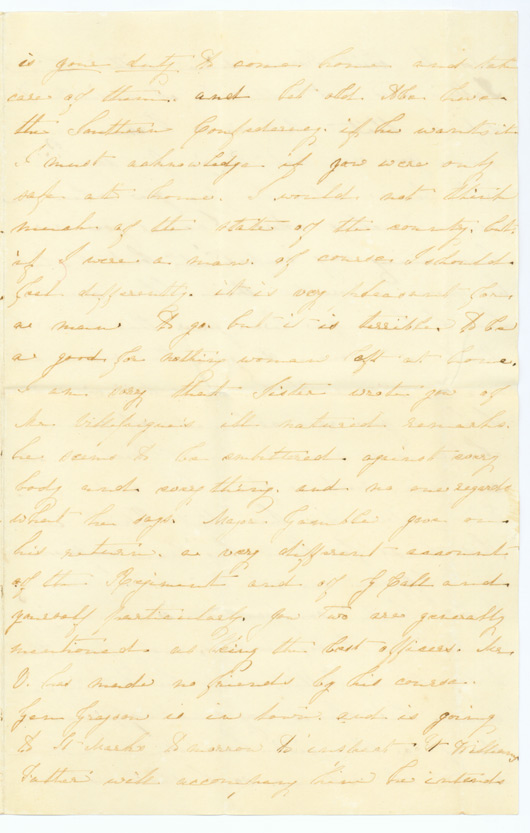 is your duty to come home and take
care of them. and let old Abe have
the Southern Confederacy. if he wants it
I must acknowledge if you were only
safe at home. I would not think
much of the state of the country. but
if I were a man. of course I should
feel differently. it is very pleasant for
a man to go. but it is terrible. to be
a good for nothing woman left at home.
I am sorry that Sister wrote you of
Mr ill natured remarks.
he seems to be embittered against every
body and every thing. and no one regards
what he says. Major Gamble gave on
his return. a very different account
of the Regiment and of and
yourself particularly. you two are generally
mentioned as being the best officers. Mr.
V. has made no friends by his course.
Gen Grayson is in town. and is going
to St Marks tomorrow to inspect
Father will accompany him he intends